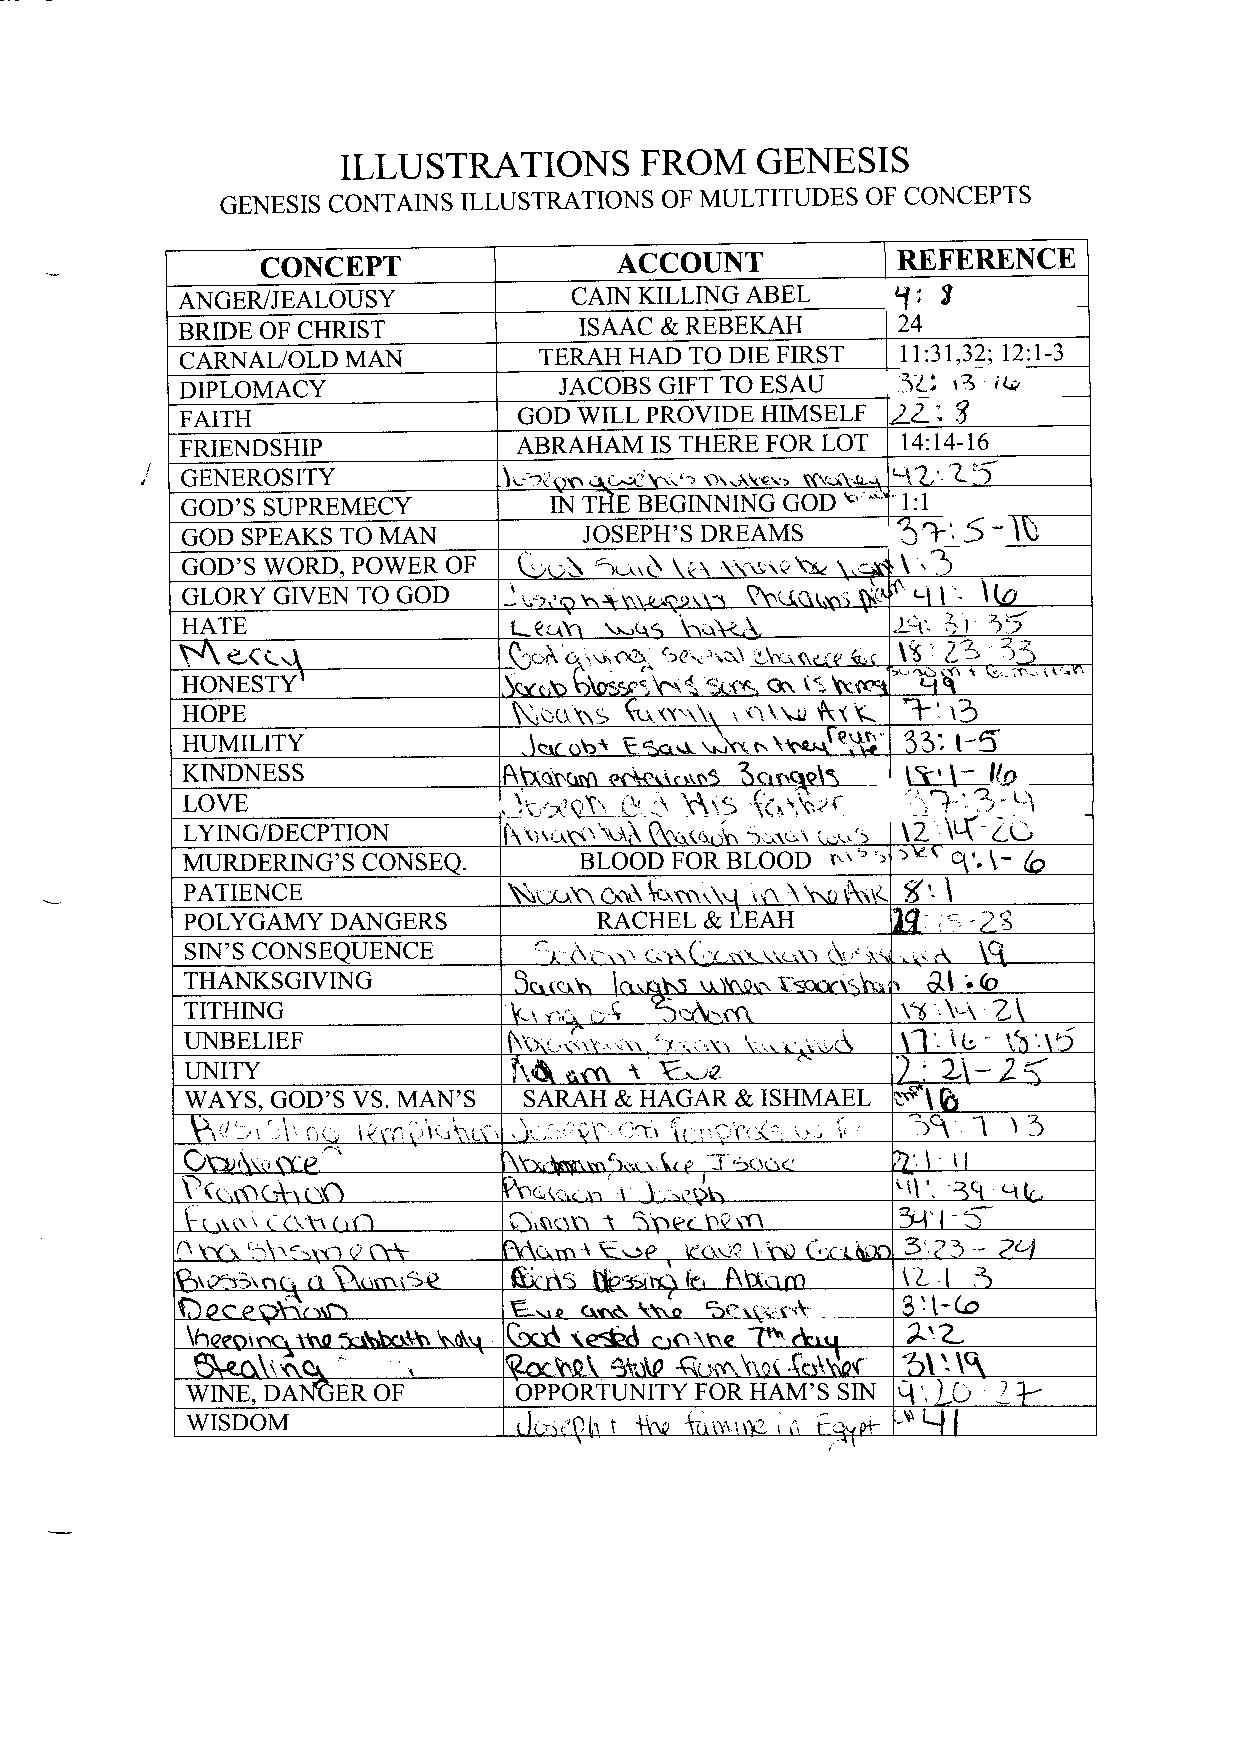 ILLUSTRATIONS FROM GENESIS
GENESIS CONTAINS ILLUSTRATIONS OF MULTITUDES OF CONCEPTS
CONCEPT ACCOUNT REFERENCE
ANGER/JEALOUSY CAIN KILLING ABEL 4: 8
BRIDE OF CHRIST ISAAC & REBEKAH 24
CARNAL/OLD MAN TERAH HAD TO DIE FIRST 11:31,32; 12:1-3
DIPLOMACY JACOBS GIFT TO ESAU 32: 13-16
FAITH GOD WILL PROVIDE HIMSELF 22: 8
FRIENDSHIP ABRAHAM IS THERE FOR LOT 14:14-16
GENEROSITY Joseph gave his brothers money 42:25
GOD'S SUPREMECY IN THE BEGINNING GOD 1:1
GOD SPEAKS TO MAN JOSEPH'S DREAMS 37:5-10
GOD'S WORD, POWER OF God said let there be light 1:3
GLORY GIVEN TO GOD Joseph Pharaohs 41: 16
HATE Leah was hated 29: 31-35
Mercy God giving several chances for 18: 23-33
HONESTY Jacob blesses his sons on is 49
HOPE Noahs family in the Ark 7:13
HUMILITY Jacob + Esau when they 33: 1-5
KINDNESS Abraham 3 angels 18:1-16
LOVE Joseph and His father 37:3-4
LYING/DECPTION Pharaoh Sarai was 12:14-20
MURDERING'S CONSEQ. BLOOD FOR BLOOD his sister 9:1-6
PATIENCE Noah and family in the Ark 8:1
POLYGAMY DANGERS RACHEL & LEAH 29:15-28
SIN'S CONSEQUENCE Sodom 19
THANKSGIVING Sarah laughs when 21:6
TITHING King of Sodom 21
UNBELIEF laughed 17:16-18:15
UNITY Adam + Eve 2: 21-25
WAYS, GOD'S VS. MAN'S SARAH & HAGAR & ISHMAEL 16
Resisting Joseph 39:7-13
Obedience Isaac
Promotion Pharaoh + Joseph 41: 39-46
Fornication Dinah + Shechem 34:1-5
Adam + Eve leave the Garden 3:23-24
Blessing a Promise Blessing to Abram 12:1-3
Deception Eve and the Serpent 3:1-6
Kheeping the Sabbath holy God rested on the 7th day 2:2
Stealing Rachel Stole from her father 31:19
WINE, DANGER OF OPPORTUNITY FOR HAM'S SIN 9:20-27
WISDOM Joseph + the famine in Egypt 41